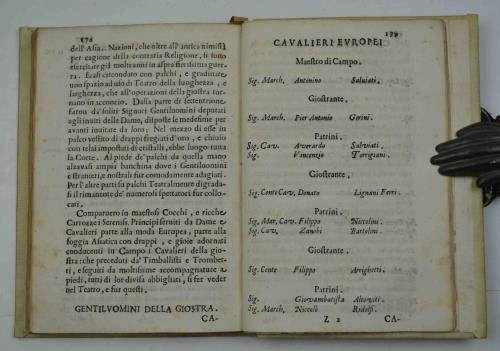 178
dell'Asia. Nazioni, che oltre all'antica nimistà
per cagione della contraria Religione, si sono
esercitate già molt'anni in aspra sierissima guerra.
Erasi circondato con palchi, e gradinate
uno spazio ad uso di Teatro della lunghezza, e
larghezza, che all'operazioni della giostra tornano
in acconcio. Dalla parte di settentrione
furon da' soliti Signori Gentiluomini deputati
agli inuiti delle Dame, disposte le medesime per
avanti inuitate da loro; Nel mezzo di esse in
palco vestito di drappi fregiati d'oro, e chiuso
con telai impostati di cristalli, ebbe luogo tutta
la Corte. Al piede de' palchi da quella mano
alzavasi ampia banchina dove i Gentiluomini
estranieri, e nostrali fur comodamente adagiati.
Per l'altre parti sa palchi Teatralmente digradasi
il rimanente de' numerosi spettatori fur collocati.
Comparuero in maestosi Cocchi, e ricche
Carrozze i Serenis. Principi serviti da Dame e
Cavalieri parte alla moda Europea, parte alla
foggia Asiatica con drappi, e gioie adornati
conducenti in Campo i Cavalieri della giostra:
che preceduti da' Timballisti e Trombetti,
e seguiti da moltissime accompagnature a
piedi, tutti di lor divisa abbigliati, si fer veder
nel Teatro, e fur questi.
GENTILVOMINI DELLA GIOSTRA.
CA-
179
CAVALIERI EVROPEI
Maestro di Campo.
Sig. March. Antonino Salviati.
Giostrante.
Sig. March. Pier Antonio Gerini.
Patrini.
Sig. Cav. Averardo Salviati.
Sig. Vincenzio Torrigiani.
Giostrante.
Sig. Conte Cav. Donato Lignani Ferri.
Patrini.
Sig. Mar. Cav. Filippo Niccolini.
Sig. Cav. Zanobi Bartolini.
Giostrante.
Sig. Conte Filippo Arrighetti.
Patrini.
Sig. Giovambatista Altoviti.
Sig. March. Niccolò Ridolfi.
Z 2 CA-